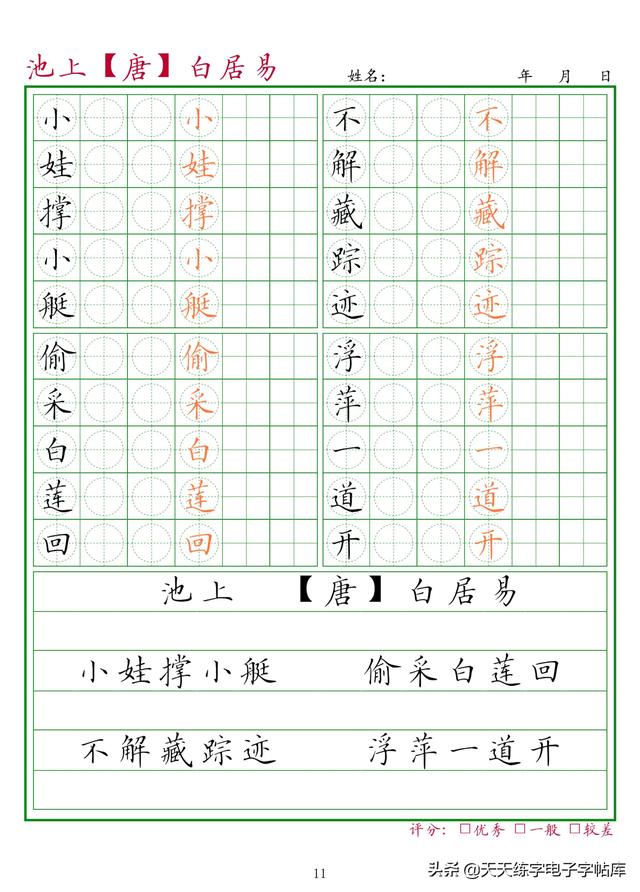 池上【唐】白居易 姓名： 年 月 日
小 小 不 不
娃 娃 解 解
撑 撑 藏 藏
小 小 踪 踪
艇 艇 迹 迹
偷 偷 浮 浮
采 采 萍 萍
白 白 一 一
莲 莲 道 道
回 回 开 开
池上 【唐】白居易
小娃撑小艇 偷采白莲回
不解藏踪迹 浮萍一道开
评分：□优秀 □一般 □较差
11
头条@天天练字电子字帖库